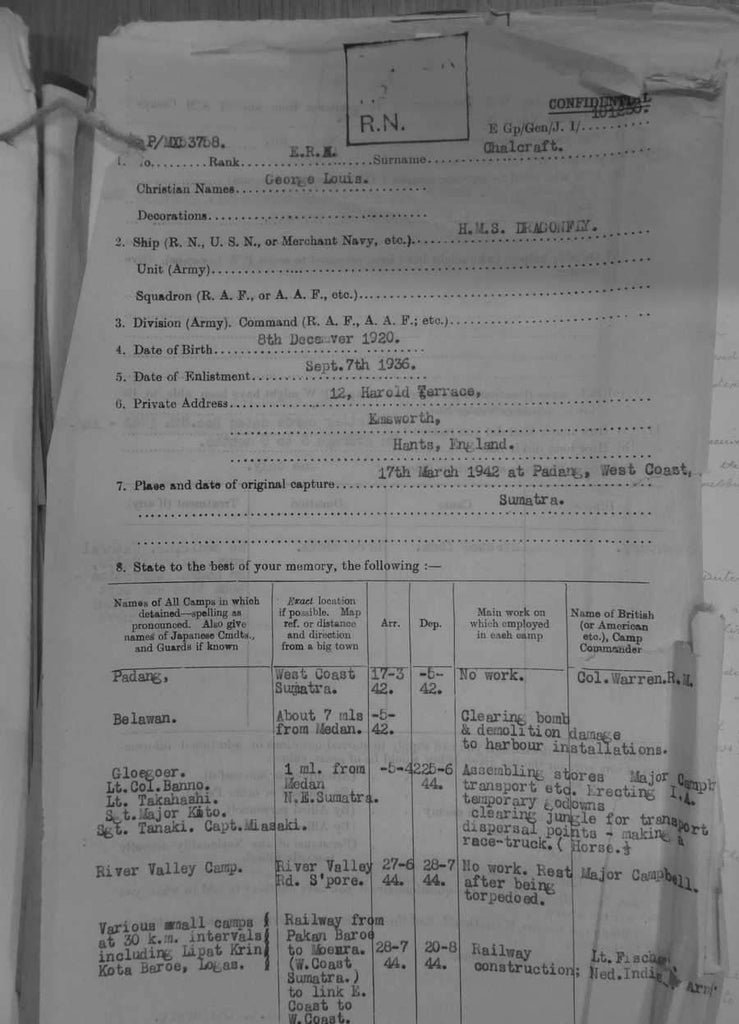 R.N.
CONFIDENTIAL
E Gp/Gen/J. 1/..........
P/MX 53758. E.R.A. Chalcraft.
1. No.........Rank......................Surname......................
George Louis.
Christian Names..............................
Decorations..................................
H.M.S. DRAGONFLY.
2. Ship (R. N., U. S. N., or Merchant Navy, etc.)..............................
Unit (Army)............................................................
Squadron (R. A. F., or A. A. F., etc.)........................................
3. Division (Army). Command (R. A. F., A. A. F.; etc.)..............................
8th December 1920.
4. Date of Birth..............................
Sept. 7th 1936.
5. Date of Enlistment..............................
12, Harold Terrace,
6. Private Address..............................
Emsworth,
Hants, England.
17th March 1942 at Padang, West Coast,
7. Place and date of original capture..............................
Sumatra.
8. State to the best of your memory, the following :—
Names of All Camps in which detained—spelling as pronounced. Also give names of Japanese Cmdts., and Guards if known
Exact location if possible. Map ref. or distance and direction from a big town
Arr.
Dep.
Main work on which employed in each camp
Name of British (or American etc.), Camp Commander
Padang, West Coast 17-3 -5- No work. Col. Warren. R.M.
Sumatra. 42. 42.
Belawan. About 7 mls -5- Clearing bomb
from Medan. 42. & demolition damage
to harbour installations.
Gloegoer. 1 ml. from -5-42 25-6 Assembling stores Major Campb
Lt. Col. Banno. Medan 44. transport etc. Erecting I.A.
Lt. Takahashi. N.E. Sumatra. temporary godowns
Sgt. Major Kato. clearing jungle for transport
Sgt. Tanaki. Capt. Miasaki. dispersal points - making a
race-truck. (Horse.)
River Valley Camp. River Valley 27-6 28-7 No work. Rest Major Campbell.
Rd. S'pore. 44. 44. after being
torpedoed.
Various small camps Railway from
at 30 k.m. intervals Pakan Baroe
including Lipat Krin, to Moeara. 28-7 20-8 Railway Lt. Fisch
Kota Baroe, Logas. (W. Coast 44. 44. construction; Ned. Indi Arm
Sumatra.)
to link E.
Coast to
W. Coast.